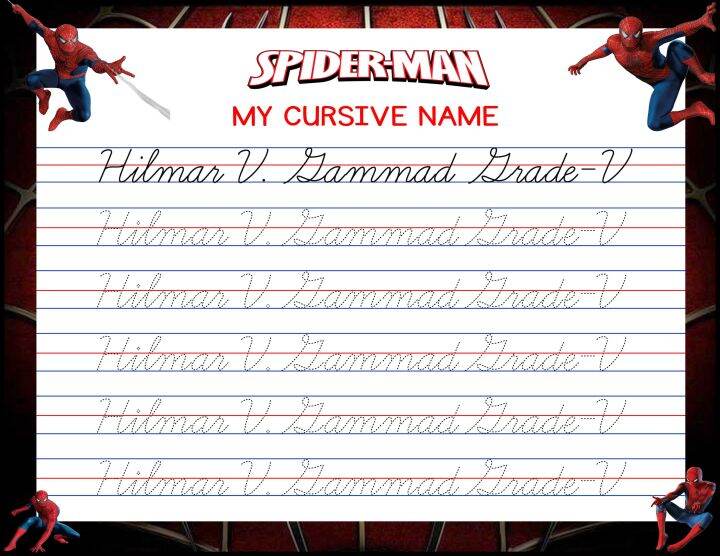 SPIDER-MAN
MY CURSIVE NAME
Hilmar V. Gammad Grade-V
Hilmar V. Gammad Grade-V
Hilmar V. Gammad Grade-V
Hilmar V. Gammad Grade-V
Hilmar V. Gammad Grade-V
Hilmar V. Gammad Grade-V